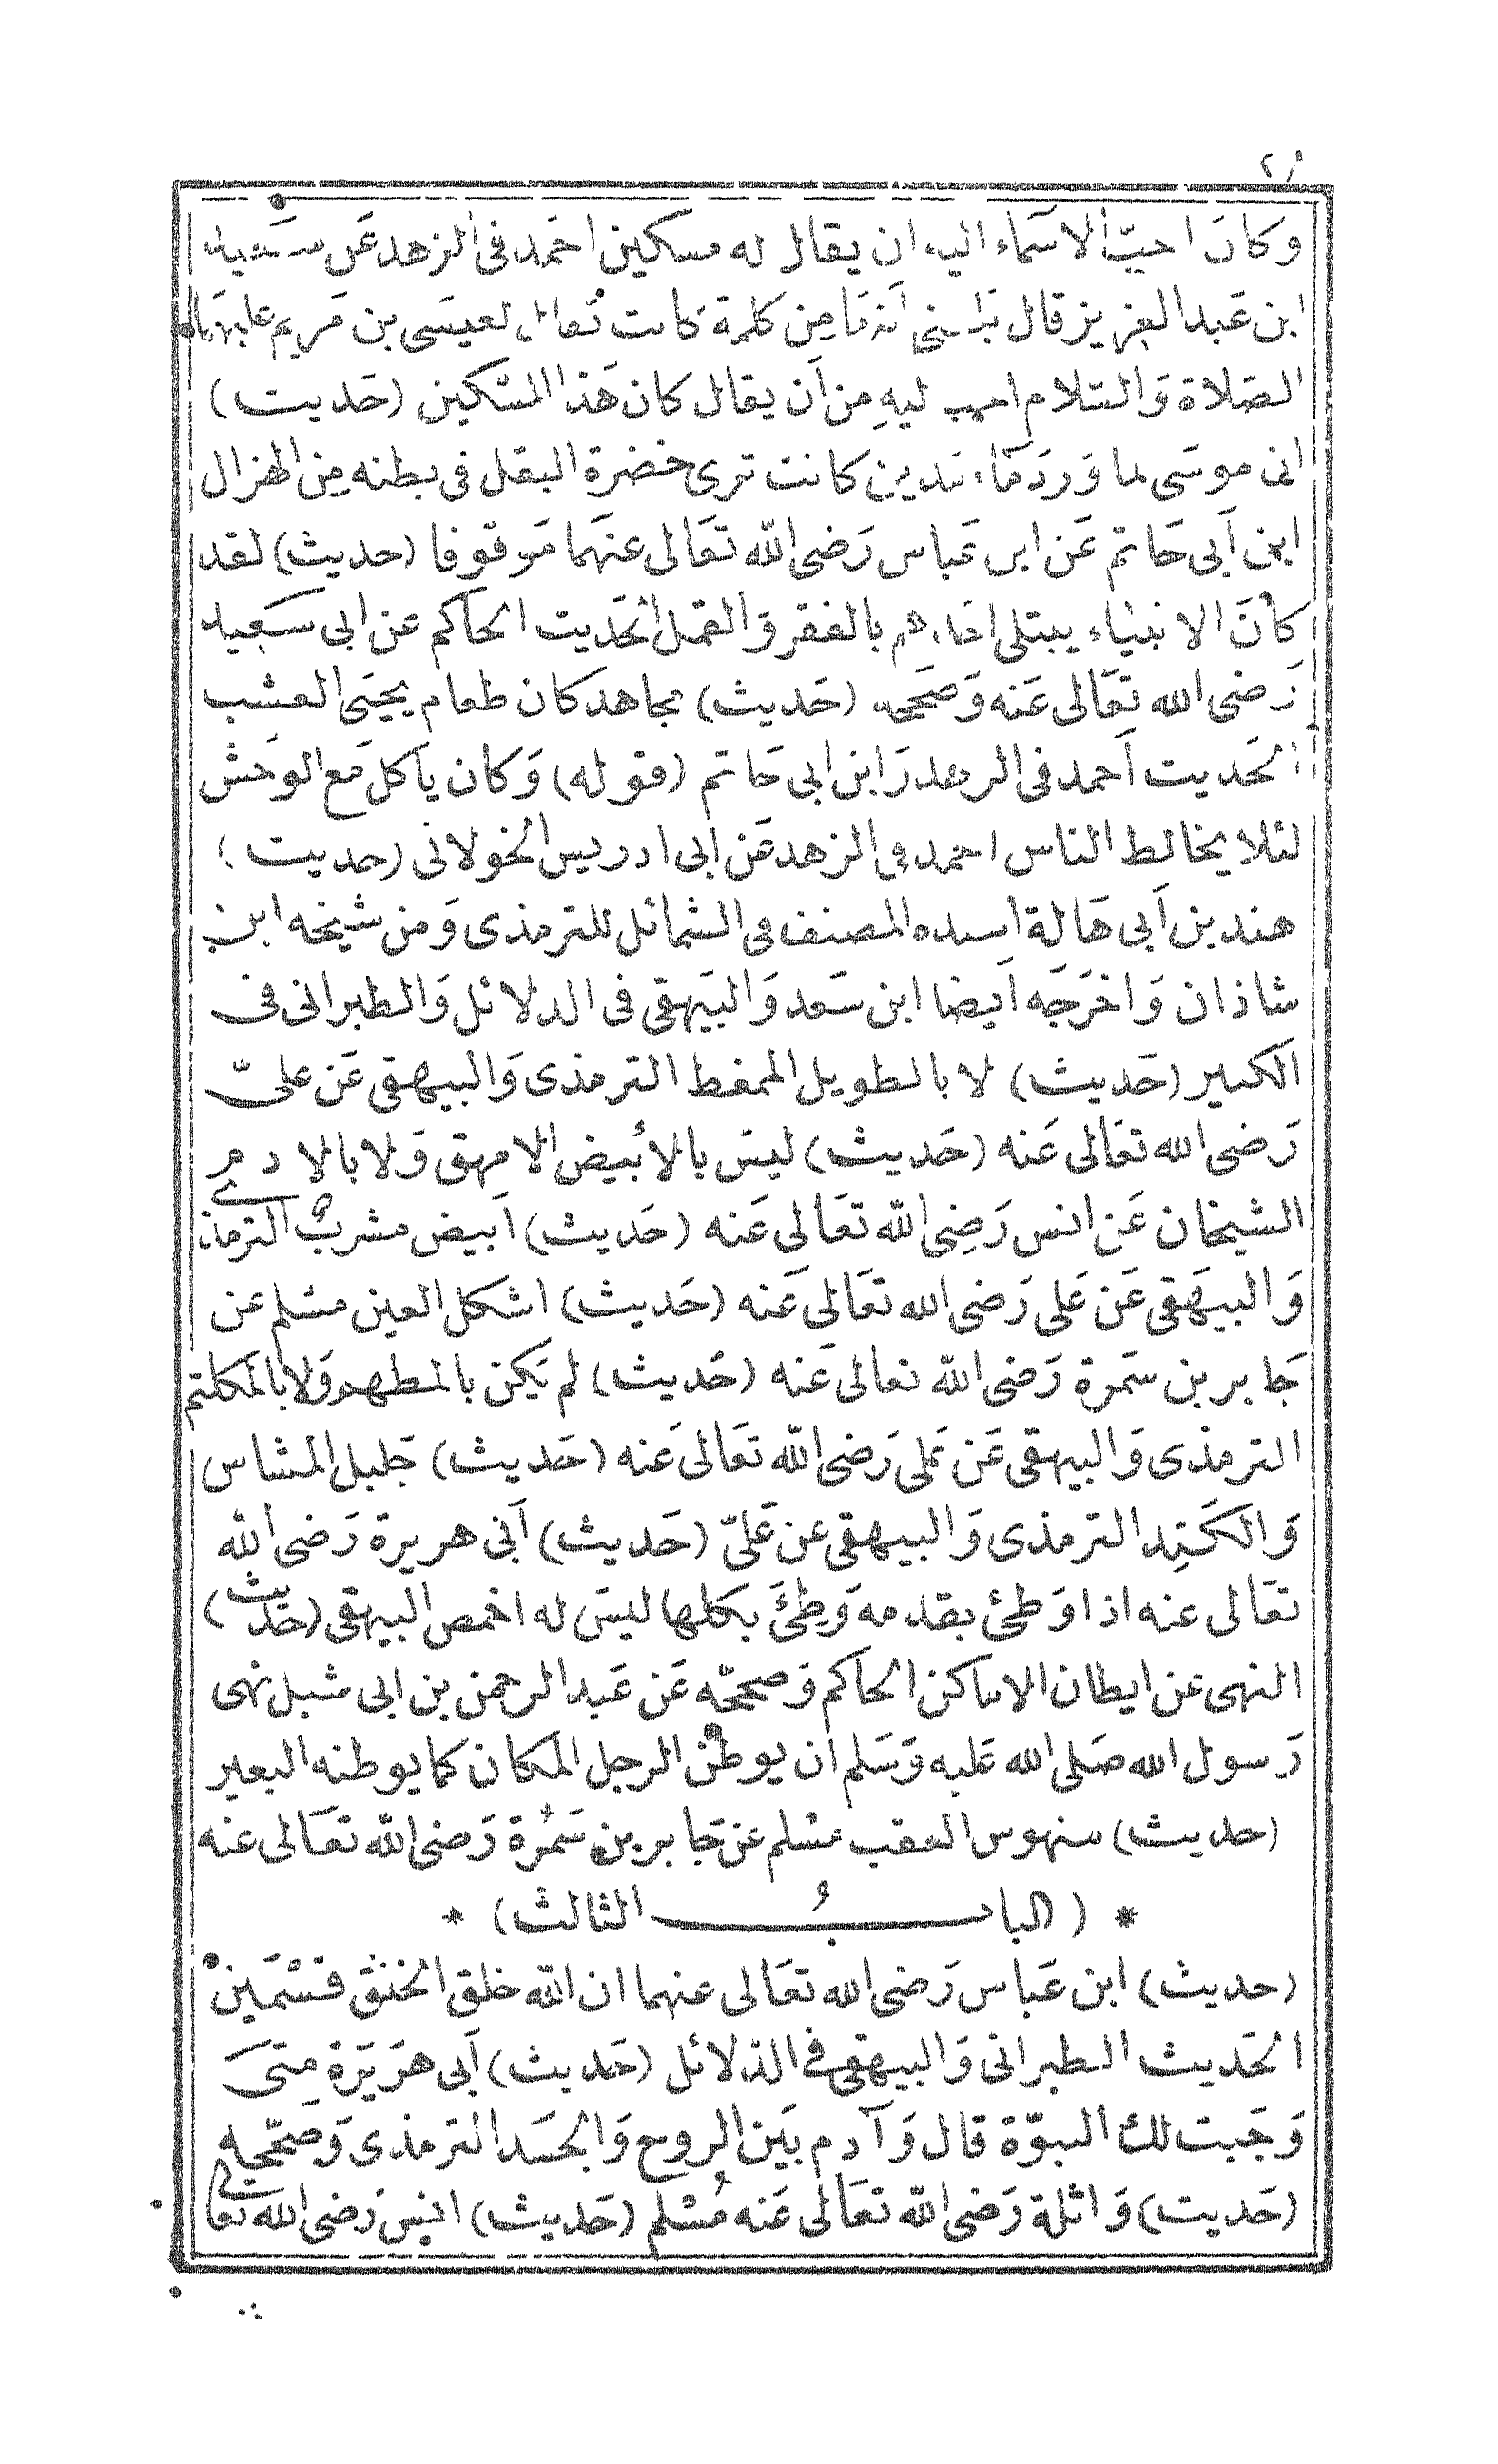 وكانَ احبّ الاسماء اليه ان يقال له مسكين احمد فى الزهد عَن سعيد
ابن عَبد العزيز قال بلغنى انه مَا مِن كلمة كانت تقال لعيسَى بن مَريم عليهمَا
الصّلاة وَالسّلام احب ليهِ مِن اَن يقال كان هَذا المسْكين (حَديث)
ان موسَى لما وَرَد مَاء مَدين كانت ترى خضرة البقل فى بطنه مِن الهزال
ابن اَبى حَاتم عَن ابن عَباس رَضى الله تعَالى عنهَما مَوقوفا (حديث) لقد
كانَ الانبيَاء يبتلى احَدهم بالفقر وَالقمل الحَديث الحَاكم عن ابى سَعيد
رَضى الله تعَالى عَنه وَصححه (حَديث) مجاهد كان طعام يحيَى العشب
الحَديث اَحمد فى الزهد وَابن ابى حَاتم (قوله) وَكان يأكل مَع الوحَش
لئلا يخالط الناس احمد فى الزهد عَن ابى ادريس الخولانى (حديث)
هند بن اَبى هَالة اسنده المصنف فى الشمائل للترمذى وَمن شيخه ابن
شاذان وَاخرَجَه اَيضا ابن سَعد وَالبيَهقى فى الدلائل وَالطبرانى فى
الكبير (حَديث) لا بالطويل الممغط الترمذى وَالبيهقى عَن علىّ
رَضى الله تعَالى عَنه (حَديث) ليسَ بالأبيض الامهق وَلا بالادم
الشيخان عَن انس رَضِى الله تعَالى عَنه (حَديث) اَبيض مشربٌ الترمذى
وَالبيهَقى عَن عَلى رَضى الله تعَالى عَنه (حَديث) اشكل العين مسْلم عن
جَابر بن سَمرة رَضى الله تعالى عَنه (حَديث) لم يَكن بالمطهم وَلا بالمكلثم
الترمذى وَالبيهقى عَن عَلى رَضى الله تعَالى عَنه (حَديث) جَليل المشاس
وَالكَتِد الترمذى وَالبيهقى عن عَلىّ (حَديث) اَبى هريرة رَضى الله
تعَالى عنه اذا وَطئ بقدمه وَطئَ بكلها ليسَ له اخمص البيهقى (حَديث)
النهى عن ايطان الاماكن الحاكم وَصححّه عَن عَبد الرحمن بن ابى شبل نهى
رَسول الله صَلى الله عَليه وَسَلم ان يوطن الرجل المكان كما يوطنه البعير
(حديث) منهوس العقب مسْلم عن جَابر بن سَمُرة رَضى الله تعَالى عنه
* (البابُ الثالث) *
(حديث) ابن عَباس رَضى الله تعَالى عنهما ان الله خلق الخلق قسْمَين
الحَديث الطبرانى وَالبيهقى فى الدلائل (حَديث) اَبى هَرَيَرة مَتىَ
وَجَبت لك النبوّة قال وَآدم بَين الروح وَالجسَد الترمذى وَصَحّحه
(حَديث) وَاثلة رَضى الله تعَالى عَنه مُسْلم (حَديث) انسَ رَضى الله تعَالى